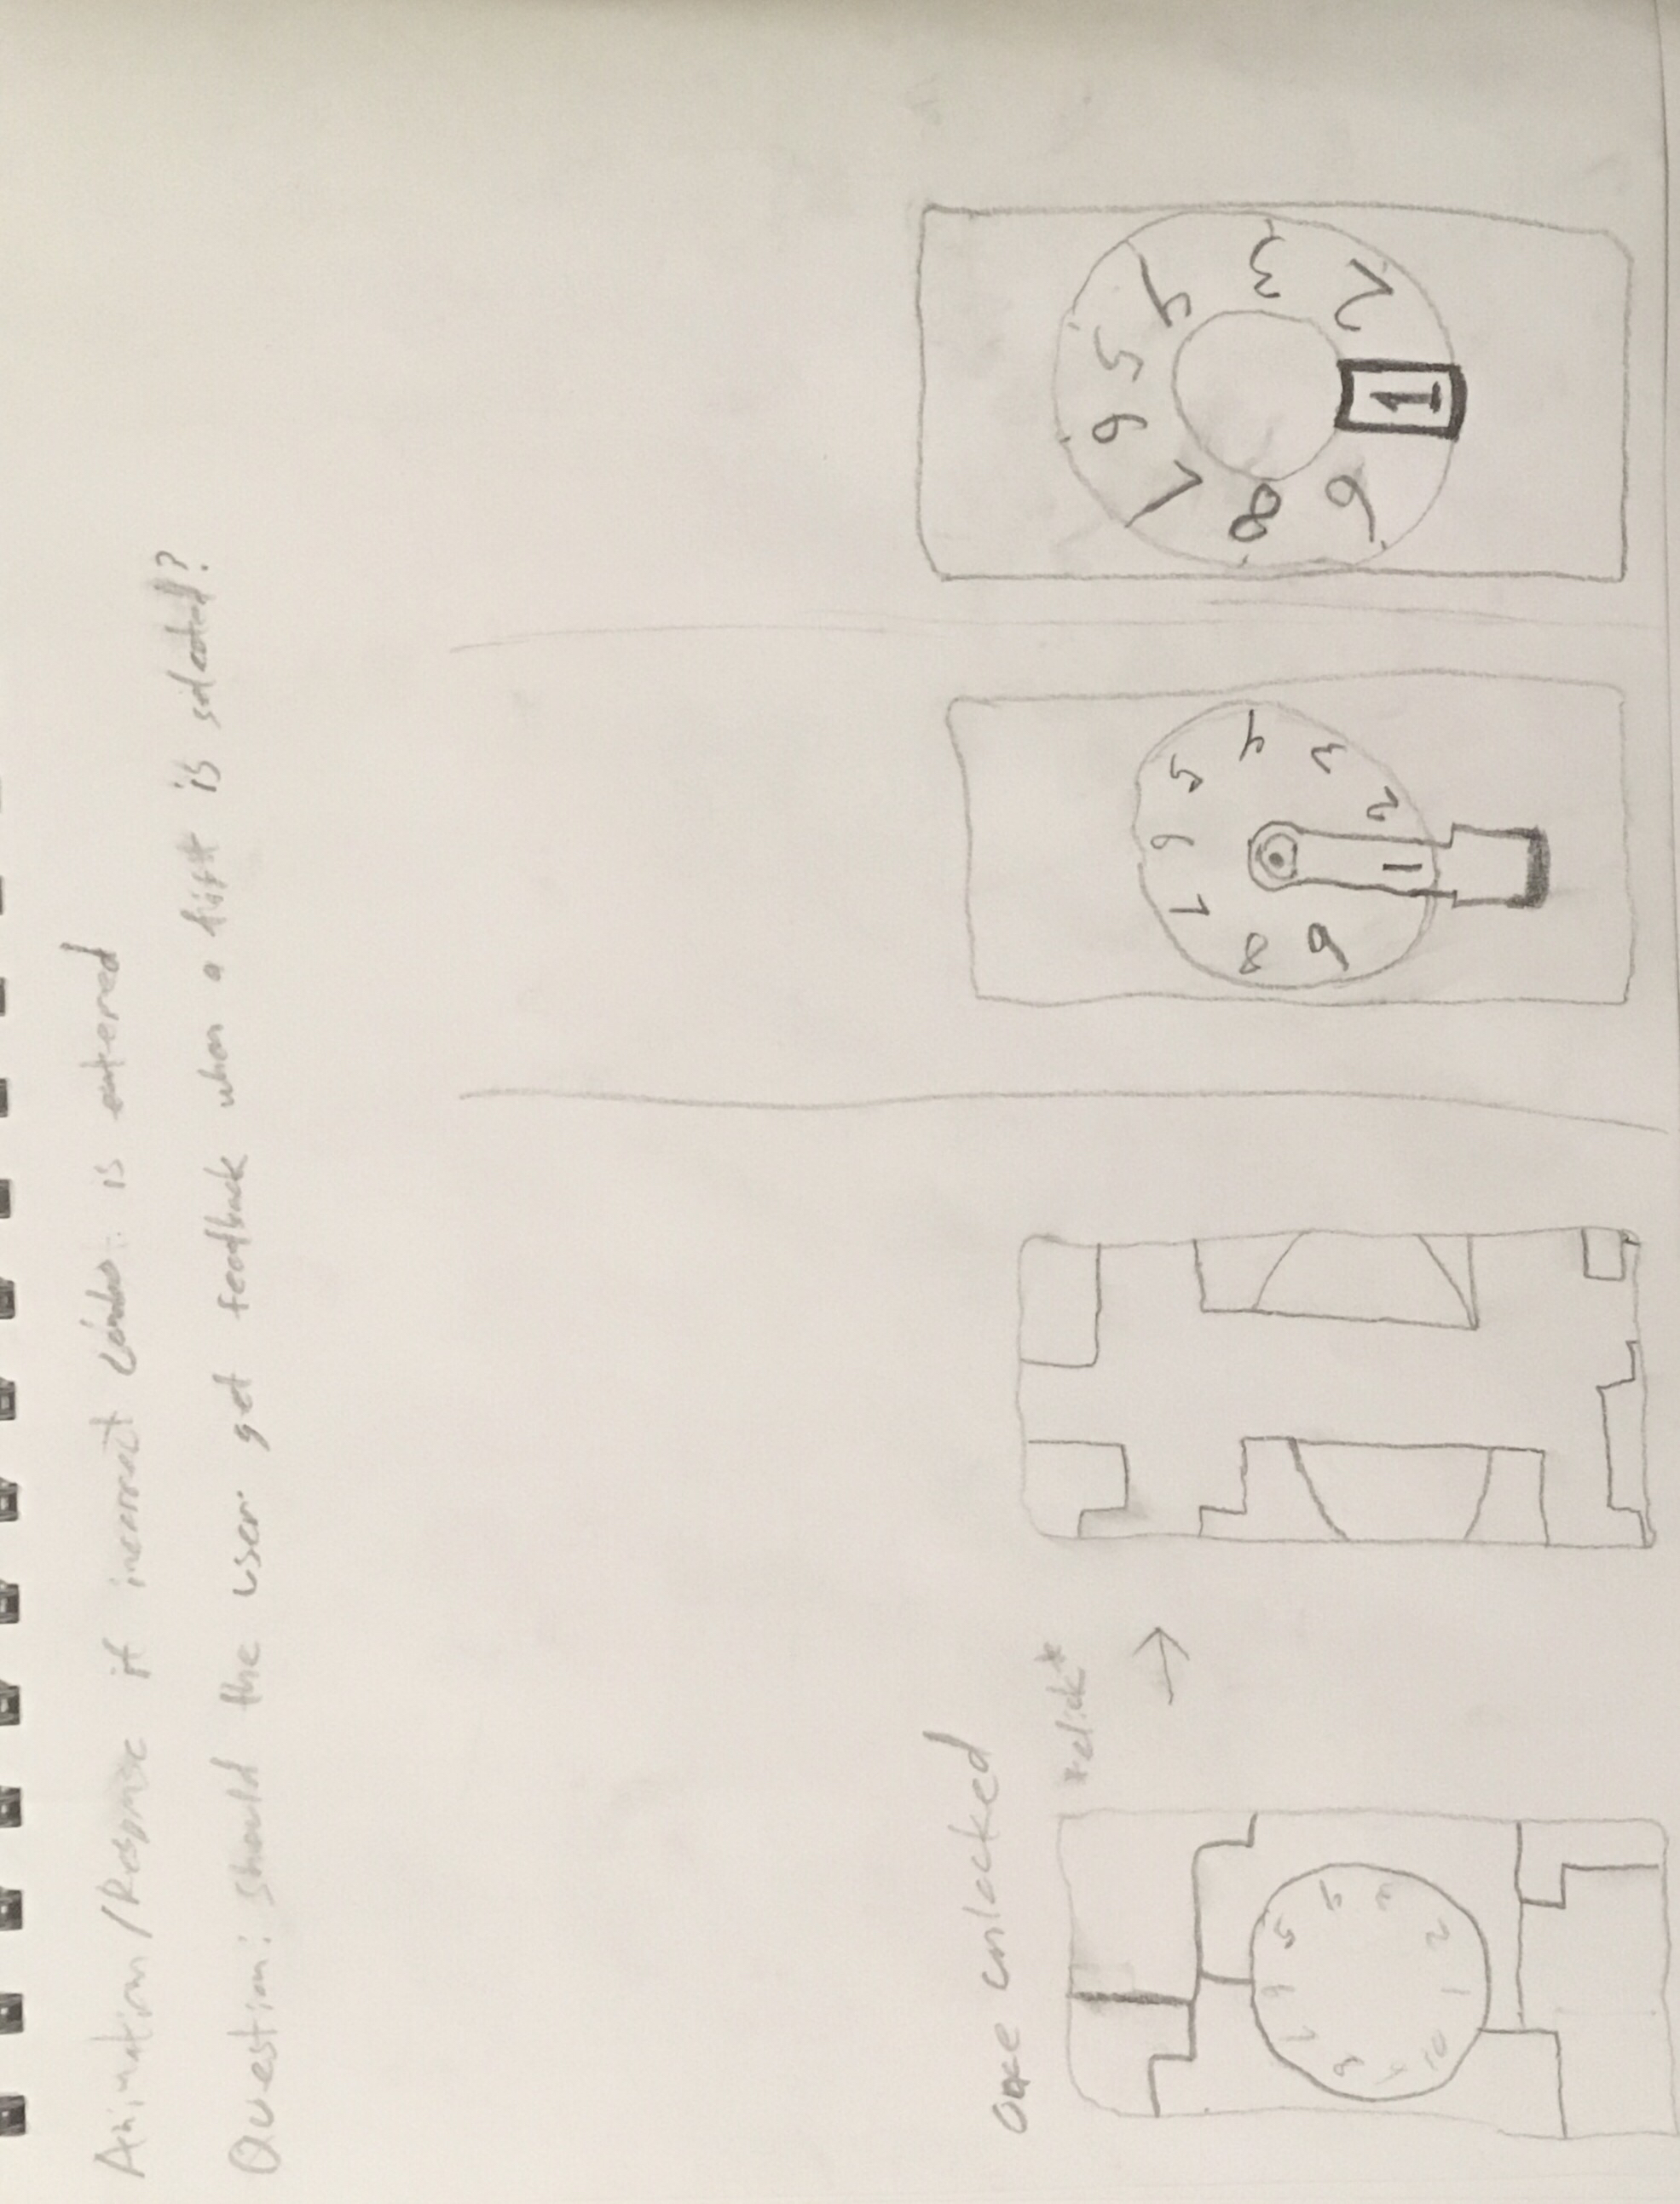 Animation/Response if incorrect combo. is entered
Question: should the user get feedback when a digit is selected?
Once unlocked
*click*
1
2
3
4
5
6
7
8
9
1
2
3
4
5
6
7
8
9